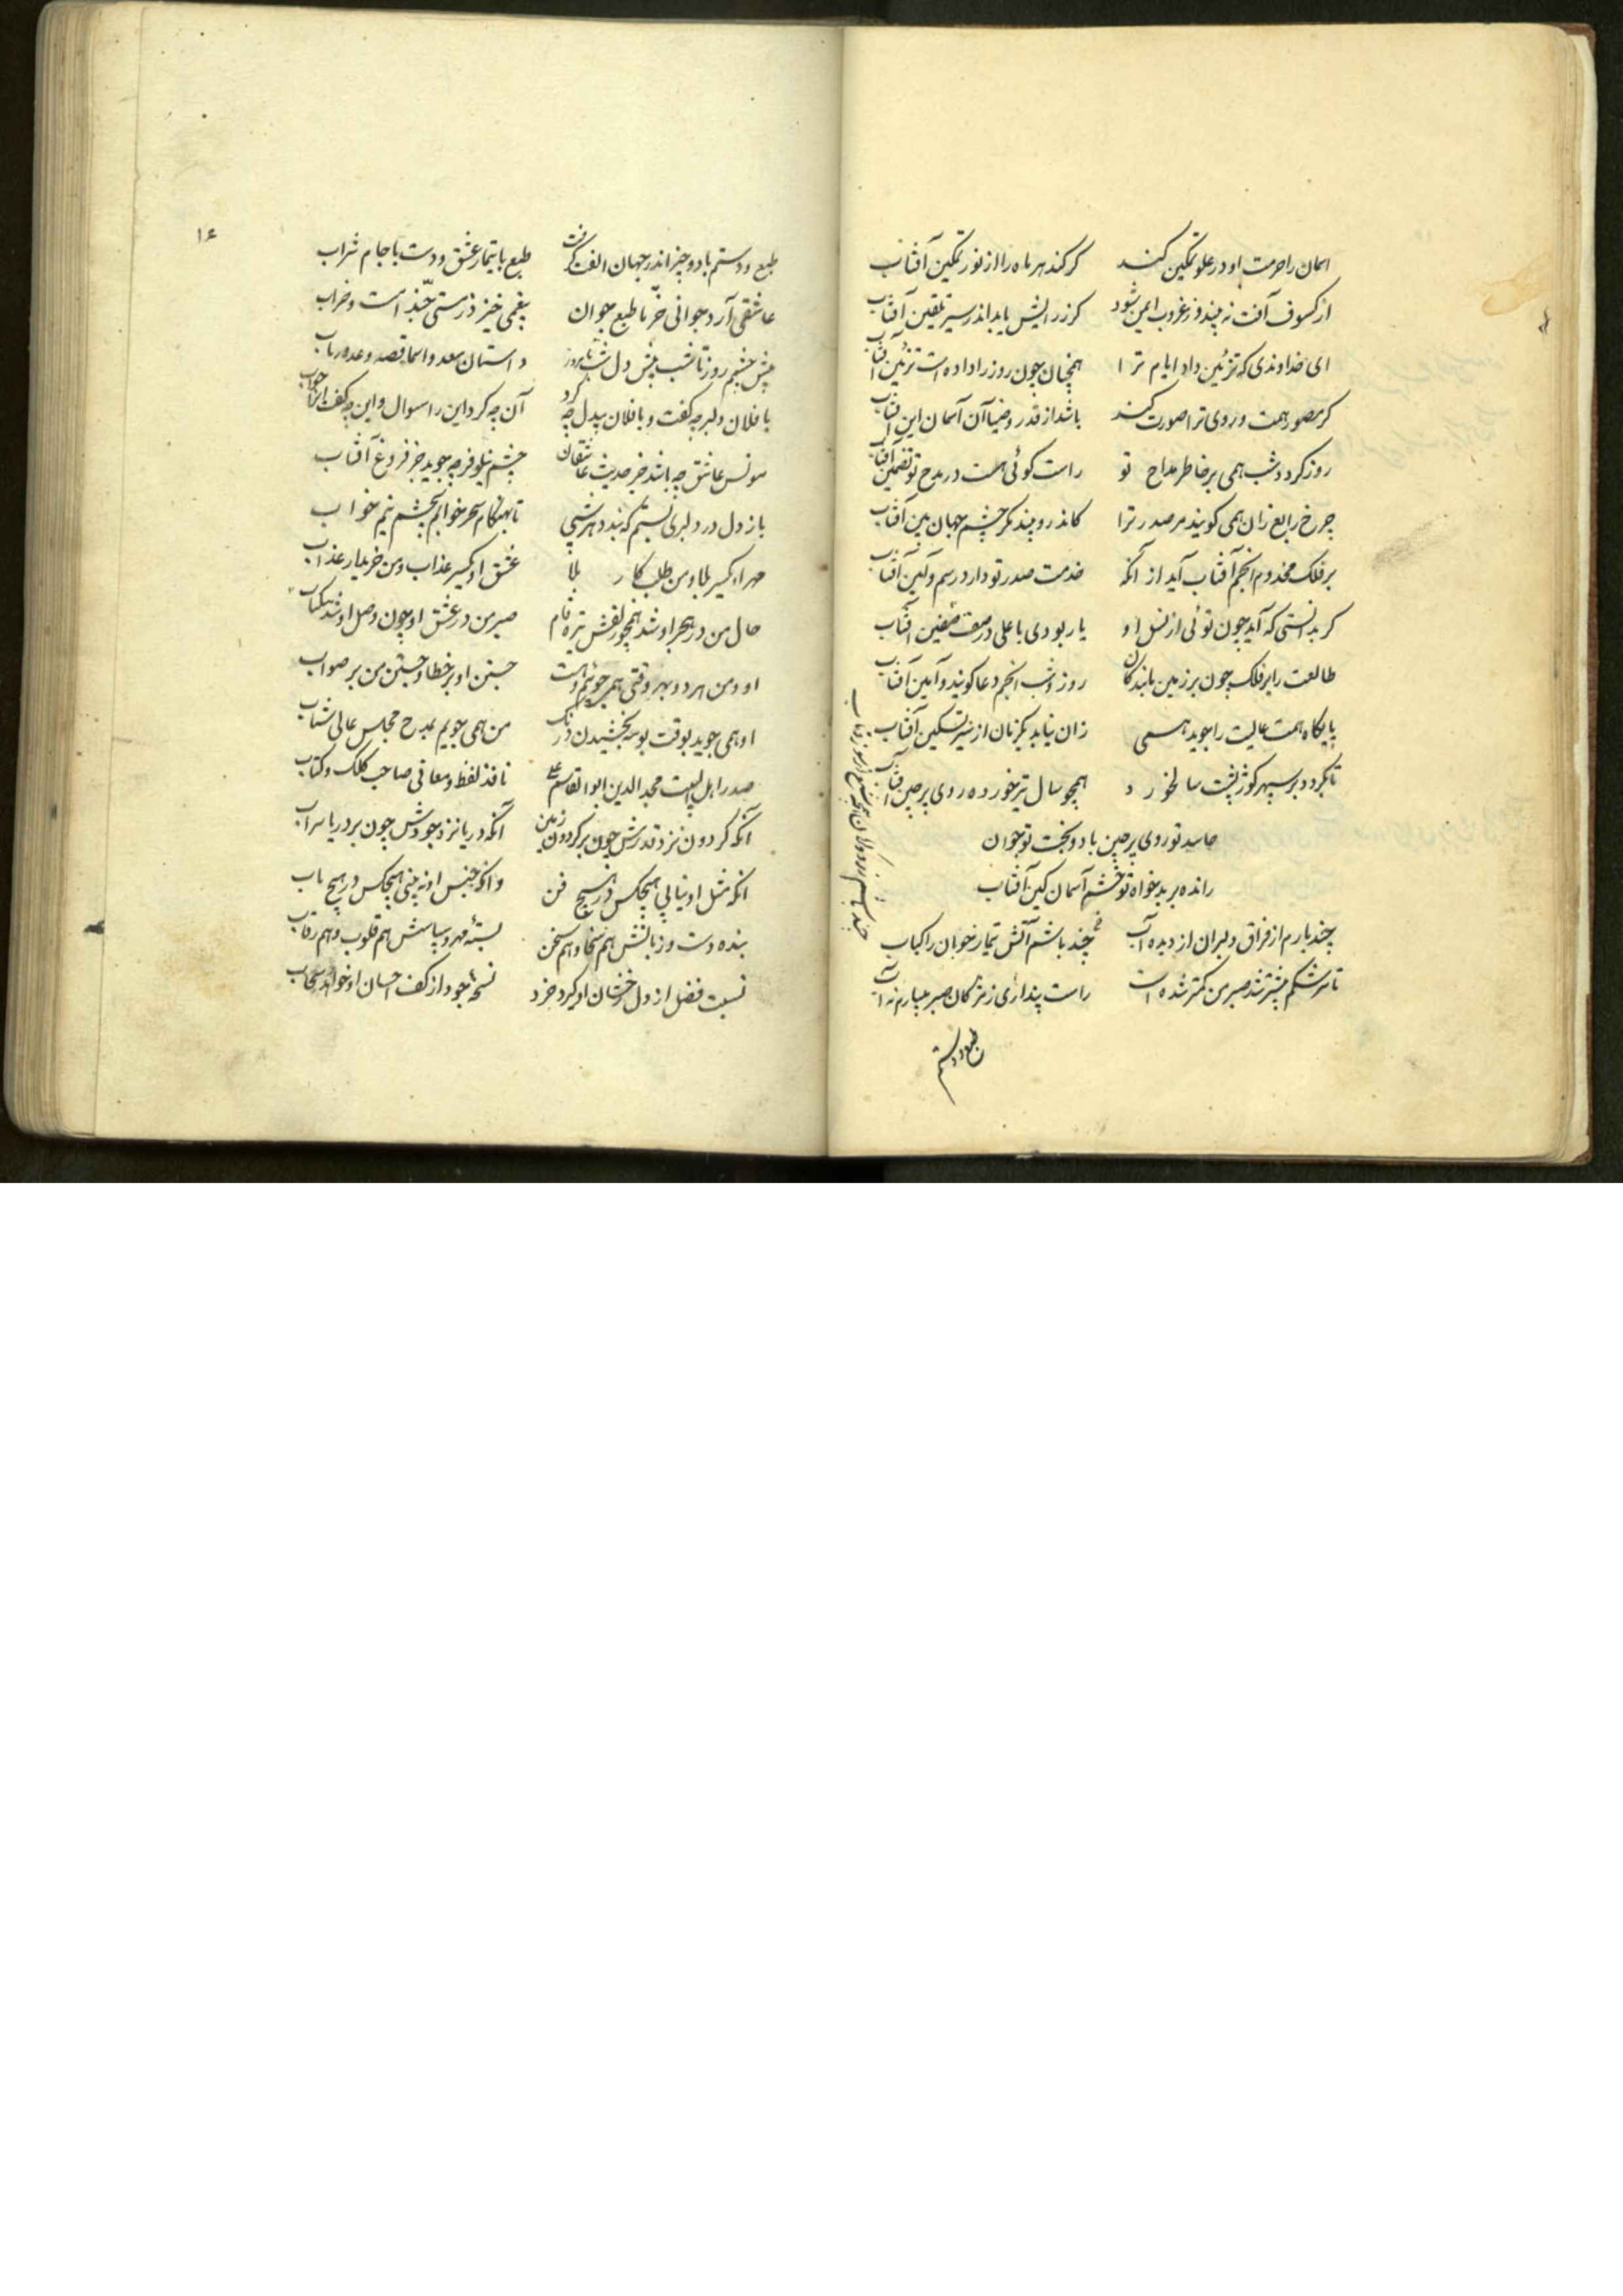 اسمان را حرمت او در علو تمکین کند کر کند هر ماه را از نور تمکین آفتاب
از کسوف آفت نه بیند وز غروب ایمن شود کر زرایش یابد اندر سیر تلقین آفتاب
ای خداوندی که تزئین داد ایام ترا همچنان چون روز را داده است تزئین آفتاب
کر مصور همت و روی ترا صورت کند باشد از قدر و ضیا آن آسمان این آفتاب
روز کردد شب همی بر خاطر مداح تو راست کوئی هست در مدح تو تضمین آفتاب
چرخ رابع زان همی کویند مر صدر ترا کاندرو بیند مکر چشم جهان بین آفتاب
بر فلک مخدوم انجم آفتاب آید از آنکه خدمت صدر تو دارد رسم و آئین آفتاب
کر بدانستی که آید چون توئی از نسل او یار بودی با علی در صف صفین آفتاب
طالعت را بر فلک چون بر زمین بانیدکان روز و شب انجم دعا کویند و آمین آفتاب
پایکاه همت عالیت را جوید همی زان نیابد یکزمان از سیر تسکین آفتاب
تا بکردد بر سپهر کوژ پشت سالخورد همچو سال تیر خورده روی پر چین آفتاب
حاسد تو روی پر چین باد و بخت تو جوان
رانده بر بدخواه تو خشم آسمان کین آفتاب
چند بارم از فراق دلبران از دیده آب چند باشم آتش تیمار خوبان را کباب
تا سرشکم بیشتر شد صبر من کمتر شده است راست پنداری ز مژکان صبر میبارم نه آب
طبع و دستم
طبع و دستم با دو چیز اندر جهان الفت کرفت طبع با تیمار عشق و دست با جام شراب
عاشقی آرد جوانی خرّما طبع جوان بیغمی خیزد ز مستی حبّذا مست و خراب
پیش چشمم روز تا شب پیش دل شب تا بروز داستان سعد و اسما قصه وعد و رباب
با فلان دلبر چه کفت و با فلان بیدل چه کرد آن چه کرد این را سوال و این چه کفت آنرا جواب
مونس عاشق چه باشد جز حدیث عاشقان چشم نیلوفر چه جوید جز فروغ آفتاب
باز دل در دلبری بستم که بندد هر شبی تا بهنکام سحر خوابم بچشم نیم خواب
مهر او یکسر بلا و من طلبکار بلا عشق او یکسر عذاب و من خریدار عذاب
حال من در هجر او شد همچو زلفش تیره فام صبر من در عشق او چون وصل او شد تنکیاب
او و من هر دو بهر وقتی همی جوئیم جست جستن او بر خطا و جستن من بر صواب
او همی جوید بوقت بوسه بخشیدن درنک من همی جویم بمدح مجلس عالی شتاب
صدر اهل البیت مجد الدین ابوالقاسم علی نافذ لفظ و معانی صاحب کلک و کتاب
آنکه کردون نزد قدرش چون بر کردون زمین آنکه دریا نزد جودش چون بر دریا سراب
آنکه مثل او نیابی هیچکس در هیچ فن و آنکه جنس او نه بینی هیچکس در هیچ باب
بنده دست و زبانش هم سخا و هم سخن بستهٔ مهر و سپاسش هم قلوب و هم رقاب
نسبت فضل از دل رخشان او کیرد خرد نسخهٔ جود از کف احسان او خواهد سحاب